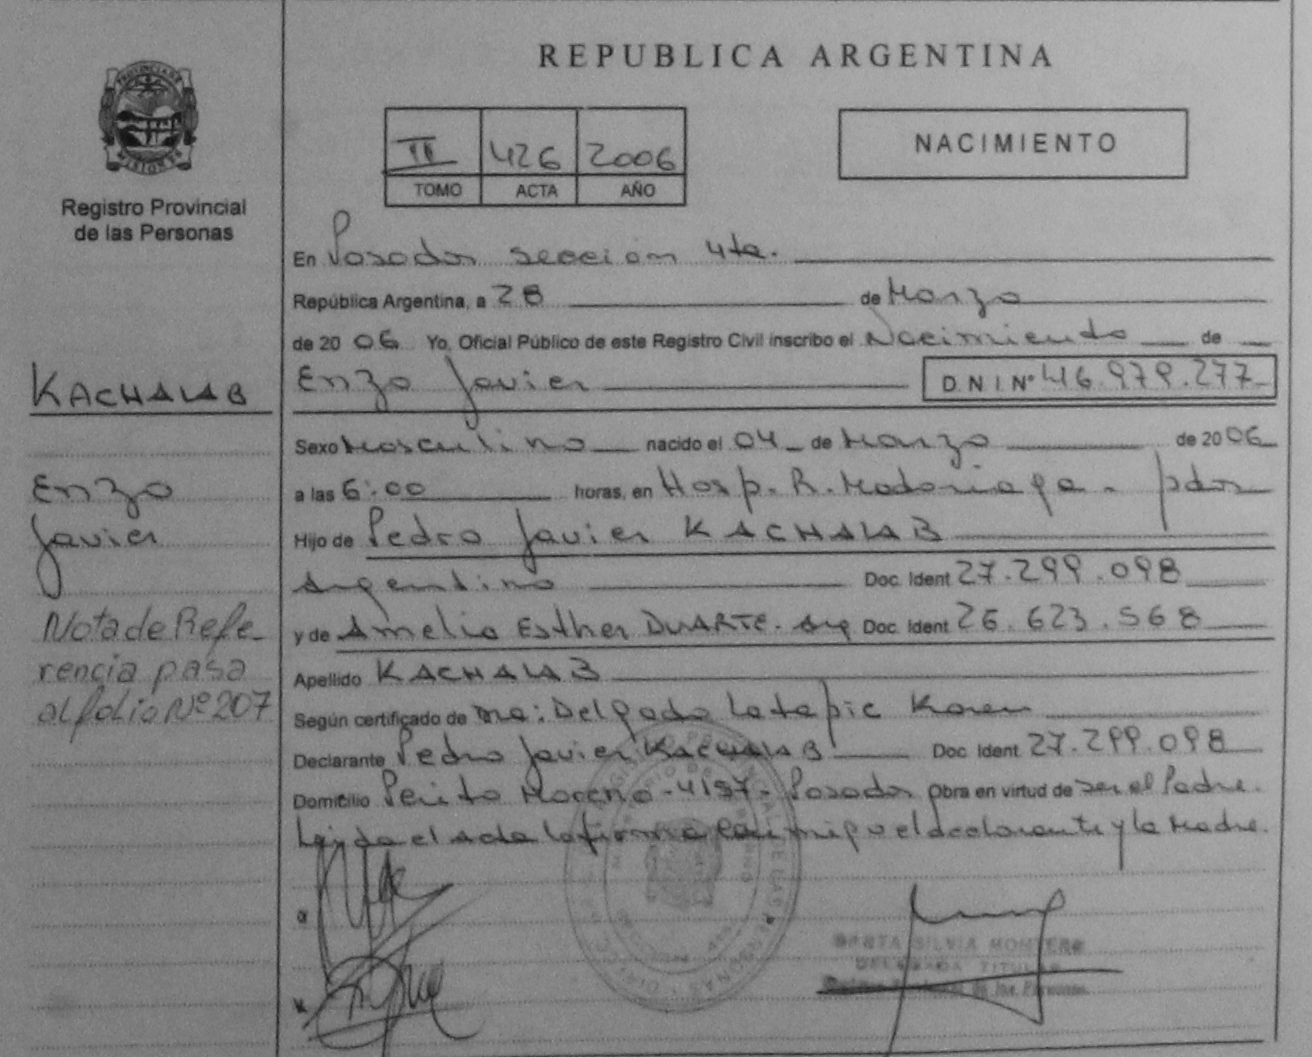 REPUBLICA ARGENTINA
PROVINCIA DE MISIONES
Registro Provincial
de las Personas
III 426 2006
TOMO ACTA AÑO
NACIMIENTO
En Posadas sección 4ta.
República Argentina, a 28 de Marzo
de 2006 Yo, Oficial Público de este Registro Civil inscribo el Nacimiento de
Enzo Javier D.N.I. Nº 46.979.277
KACHALAB
Enzo
Javier
Nota de Refe-
rencia pasa
al folio Nº 207
Sexo Masculino nacido el 04 de Marzo de 2006
a las 6:00 horas, en Hosp. R. Madariaga - pdas
Hijo de Pedro Javier KACHALAB
Argentino Doc. Ident 27.299.098
y de Amelia Esther DUARTE. Arg Doc. Ident 26.623.568
Apellido KACHALAB
Según certificado de Delgado Latapie Karen
Declarante Pedro Javier KACHALAB Doc. Ident 27.299.098
Domicilio Perito Moreno - 4197 - Posadas Obra en virtud de ser el Padre.
Leída el acta la firma conmigo el declarante y la Madre.
SILVIA MONTERO
DELEGADA TITULAR
de las Personas